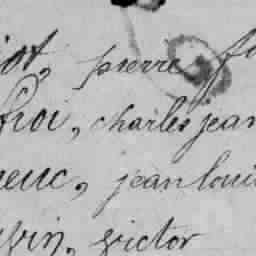 iot, pierre
hoi, charles jean
neuc, jean loui
vin, victor